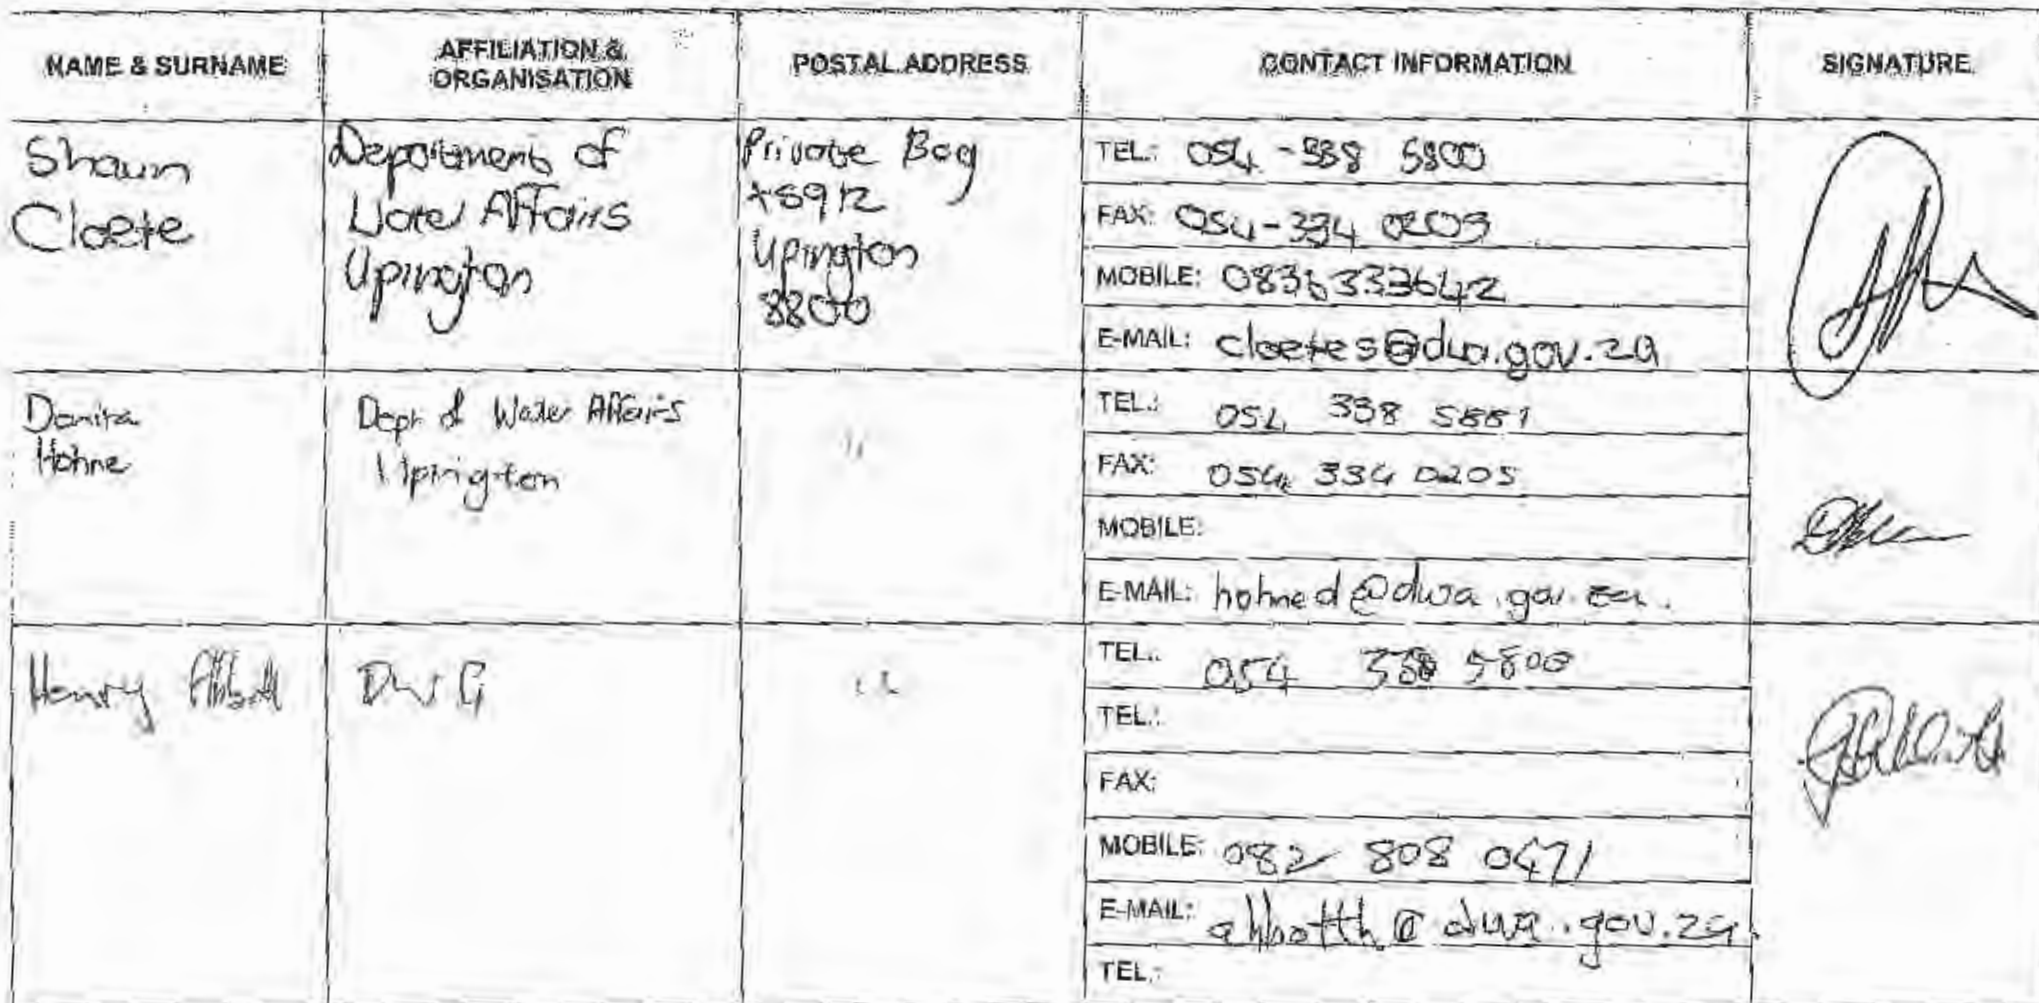 NAME & SURNAME
AFFILIATION &
ORGANISATION
POSTAL ADDRESS
CONTACT INFORMATION
SIGNATURE
Shaun
Cloete
Department of
Water Affairs
Upington
Private Bag
X5912
Upington
8800
TEL.: 054 - 338 5800
FAX: 054-334 0205
MOBILE: 0836333642
E-MAIL: cloetes@dwa.gov.za
Danita
Hohne
Dept of Water Affairs
Upington
"
TEL.: 054 338 5881
FAX: 054 334 0205
MOBILE:
E-MAIL: hohned@dwa.gov.za.
Henry Abbott
"
TEL.: 054 338 5800
TEL.:
FAX:
MOBILE: 082 808 0471
E-MAIL: abbotth@dwa.gov.za
TEL.: